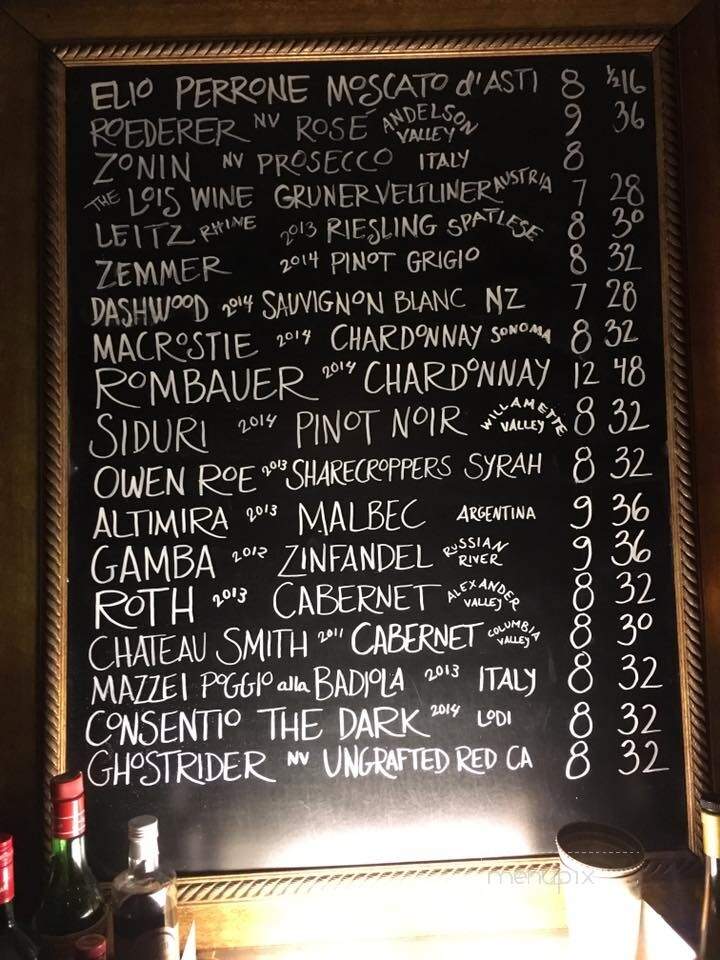 ELIO PERRONE MOSCATO d'ASTI 8 ½16
ROEDERER NV ROSÉ ANDELSON VALLEY 9 36
ZONIN NV PROSECCO ITALY 8
THE LOIS WINE GRUNER VELTLINER AUSTRIA 7 28
LEITZ RHINE 2013 RIESLING SPATLESE 8 30
ZEMMER 2014 PINOT GRIGIO 8 32
DASHWOOD 2014 SAUVIGNON BLANC NZ 7 28
MACROSTIE 2014 CHARDONNAY SONOMA 8 32
ROMBAUER 2014 CHARDONNAY 12 48
SIDURI 2014 PINOT NOIR WILLAMETTE VALLEY 8 32
OWEN ROE 2013 SHARECROPPERS SYRAH 8 32
ALTIMIRA 2013 MALBEC ARGENTINA 9 36
GAMBA 2012 ZINFANDEL RUSSIAN RIVER 9 36
ROTH 2013 CABERNET ALEXANDER VALLEY 8 32
CHATEAU SMITH 2011 CABERNET COLUMBIA VALLEY 8 30
MAZZEI POGGIO alla BADIOLA 2013 ITALY 8 32
CONSENTIO THE DARK 2014 LODI 8 32
GHOSTRIDER NV UNGRAFTED RED CA 8 32
menupix